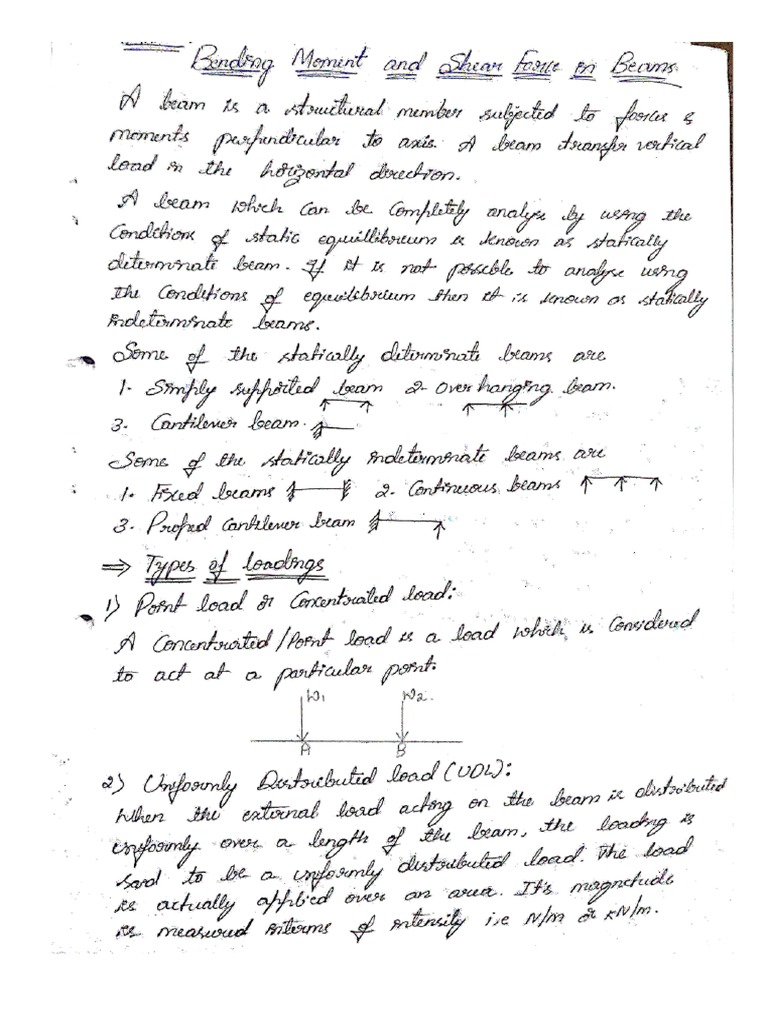 Bending Moment and Shear Force in Beams.
A beam is a structural member subjected to forces &
moments perpendicular to axis. A beam transfer vertical
load in the horizontal direction.
A beam which can be completely analyse by using the
Conditions of static equillibrium is known as statically
determinate beam. If it is not possible to analyse using
the Conditions of equilibrium then it is known as statically
indeterminate beams.
Some of the statically determinate beams are
1. Simply supported beam 2. Over hanging beam.
3. Cantilever beam.
Some of the statically indeterminate beams are
1. Fixed beams 2. Continuous beams
3. Proped Cantilever beam
⇒ Types of loadings
1) Point load or Concentrated load:
A Concentrated/Point load is a load which is Considered
to act at a particular point.
W1 W2
A B
2) Uniformly Distributed load (UDL):
When the external load acting on the beam is distributed
uniformly over a length of the beam, the loading is
said to be a uniformly distributed load. The load
is actually applied over an area. It's magnitude
is measured interms of intensity i,e N/m or kN/m.